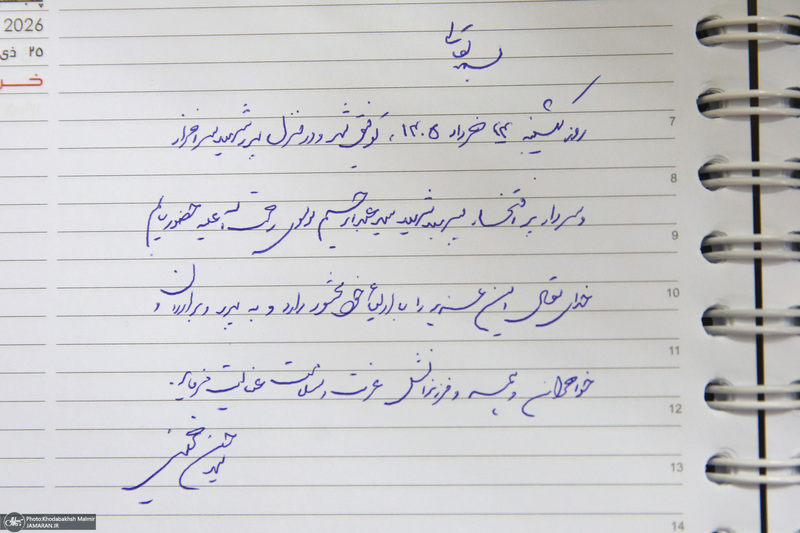 2026
۲۵ ذی
خر
بسمه تعالی
روز یکشنبه ۲۴ خرداد ۱۴۰۵، توفیق شد و در منزل پدر شهید سرافراز
و سردار پر افتخار سپهبد شهید سید عبدالرحیم موسوی رحمت الله علیه حضور یابم
خدای تعالی این عزیز را با اولیاء خود محشور دارد و به پدر و برادران و
خواهران و همسر و فرزندانش عزت و سلامت عنایت فرماید.
سید حسن خمینی
7
8
9
10
11
12
13
14
Photo:Khodabakhsh Malmir
JAMARAN.IR